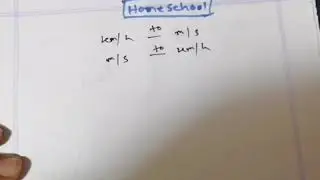 Home School
km/h to m/s
m/s to km/h